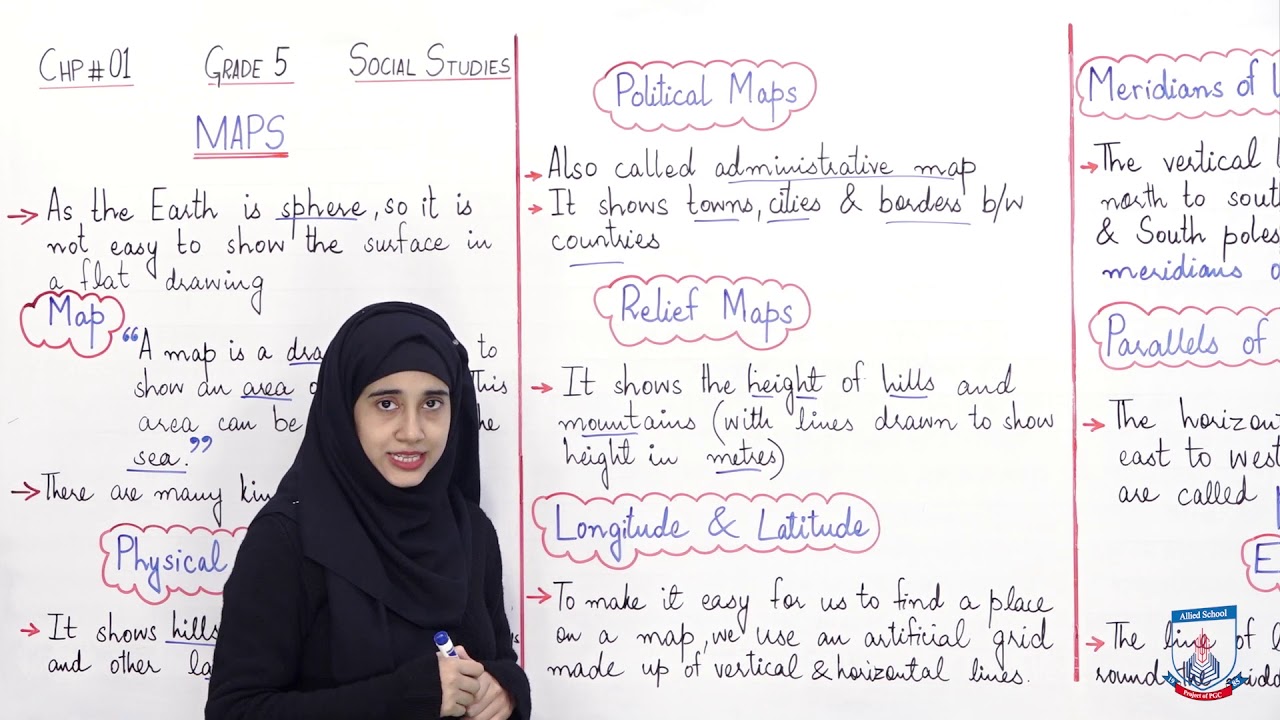 CHP # 01 GRADE 5 SOCIAL STUDIES
MAPS
→ As the Earth is sphere, so it is
not easy to show the surface in
a flat drawing
Map
“A map is a to
show an area This
area can be the
sea.”
→ There are many
Physical
→ It shows hills
and other
Political Maps
→ Also called administrative map
→ It shows towns, cities & borders b/w
countries
Relief Maps
→ It shows the height of hills and
mountains (with lines drawn to show
height in metres)
Longitude & Latitude
→ To make it easy for us to find a place
on a map, we use an artificial grid
made up of vertical & horizontal lines.
Meridians of
→ The vertical
north to
& South poles
meridians
Parallels of
→ The
east to
are called
→ The line of
round the
Allied School
Project of PGC